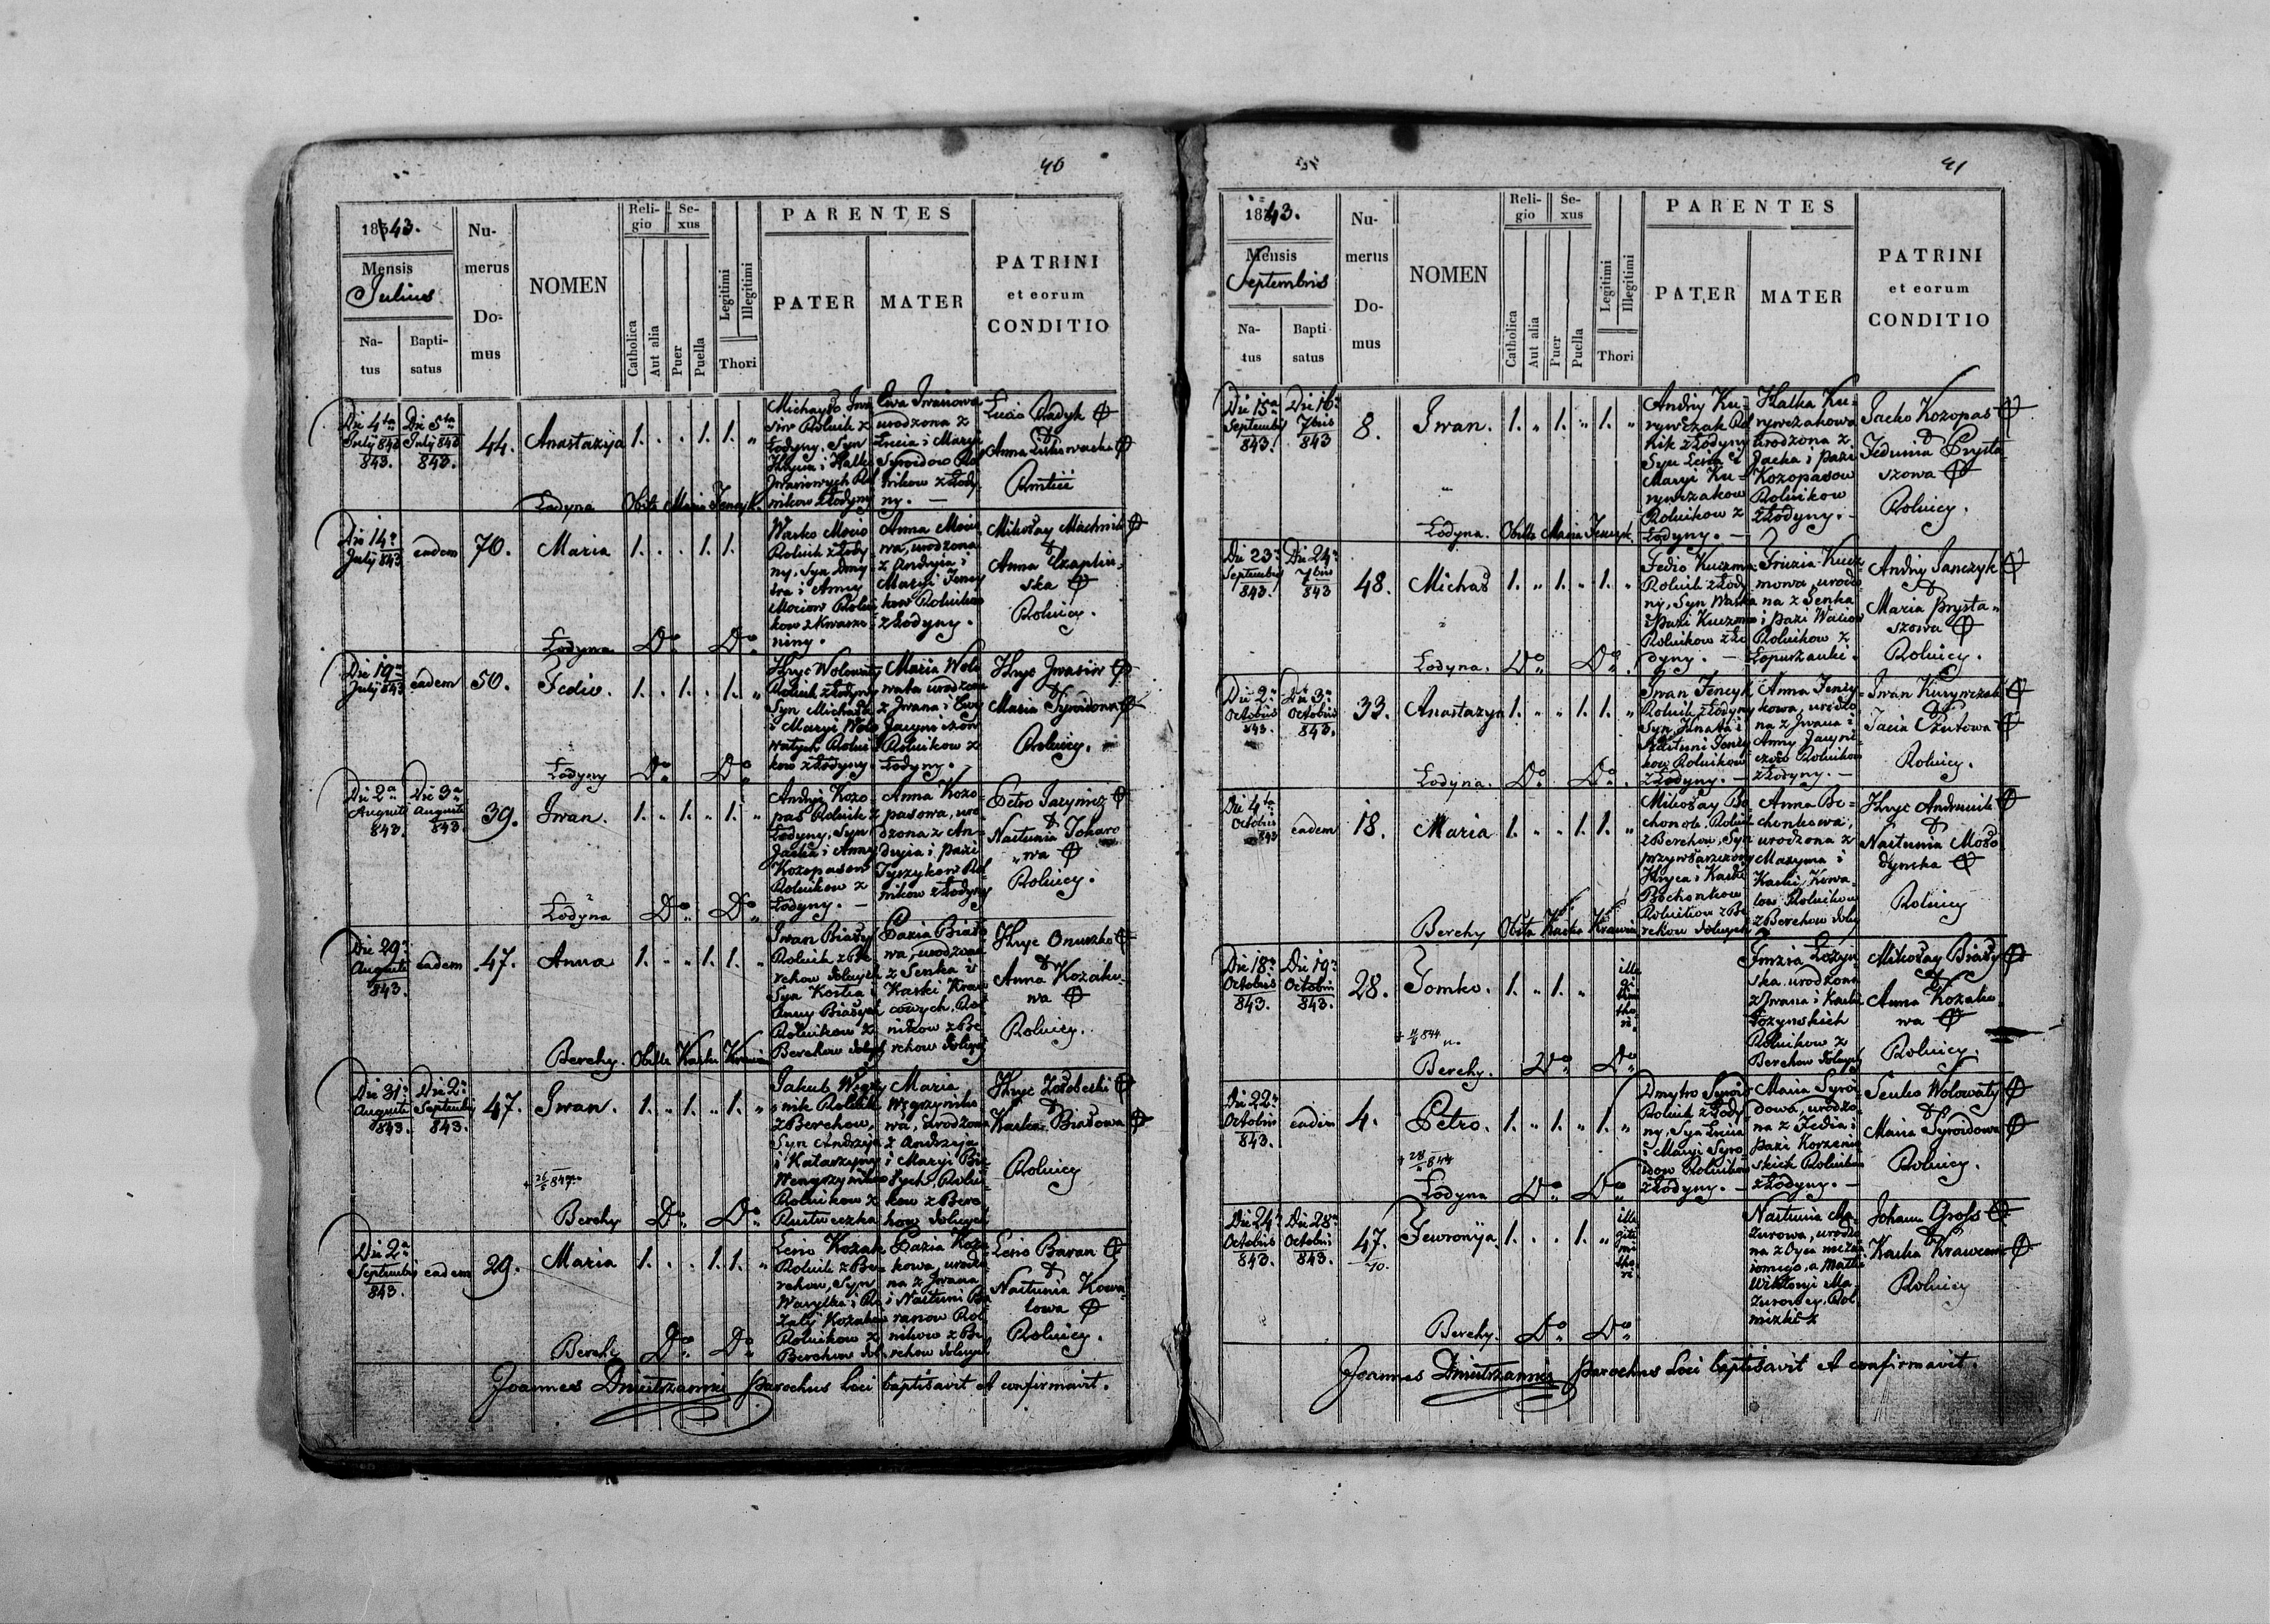 40
1843.
Mensis
Julius
Na-
tus
Bapti-
satus
Nu-
merus
Do-
mus
NOMEN
Reli-
gio
Catholica
Aut alia
Se-
xus
Puer
Puella
Legitimi
Illegitimi
Thori
PARENTES
PATER
MATER
PATRINI
et eorum
CONDITIO
Die 4ta
July 843
843.
Die 5ta
July 843
843.
44.
Anastazija
1. . . 1. 1. „
Łodyna
Obste Maria Jenczyk.
Michayło Iwa
siw Rolnik z
Łodyny, Syn
Hryca i Halki
Iwasiowych Rol
nikow z Łodyny
Ewa Iwasiowa
urodzona z
Łucia i Maryi
Syroidow Rol
nikow z Łody
ny. —
Anna
Die 14a
July 843
eadem
70.
Maria
1. . . 1. 1.
Łodyna
Do
Do
Wasko Mocio
Rolnik z Łody
ny, Syn Dmy
tra i Anny
Mociow Rolni
kow z Kwasze
niny.
Anna Mocio
wa, urodzona
z Andryia i
Maryi Jenczy
kow Rolnikow
z Łodyny.
Mikołay
&
Anna Czaplin
ska
Rolnicy.
Die 19a
July 843
eadem
50.
Fedio.
1. . 1. . 1. „
Łodyny
Do
Do
Hryc Wolowaty
Rolnik z Łodyny
Syn Michała
i Maryi Wolo
watych Rolni
kow z Łodyny.
Maria Wolo
wata urodzona
z Iwana i Ewy
Rolnikow z
Łodyny. —
Hryc Iwasiw
&
Maria Syroidowa
Rolnicy.
Die 2a
Augusti
843.
Die 3a
Augusti
843.
39.
Iwan.
1. „ 1. „ 1. „
Łodyna
Do
Do
Andryi Kozo
pas Rolnik z
Łodyny, Syn
Jacka i Anny
Kozopasow
Rolnikow z
Łodyny. —
Anna Kozo
pasowa, uro
dzona z An
dryia i Pazi
Rol
nikow z Łodyny
Petro
&
Nastunia
wa
Rolnicy.
Die 29a
Augusti
843.
eadem
47.
Anna
1. „ „ 1. 1. „
Berehy.
Obste Kaska
Iwan Biały
Rolnik z Be
rehow dolnych
Syn Kostia i
Anny Białych
Rolnikow z
Berehow dolnych
Pazia Biało
wa, urodzona
z Senka i
Kaski Kraw
cowych, Rol
nikow z Be
rehow dolnych
Hryc Onuszko
&
Anna Kozako
wa
Rolnicy.
Die 31a
Augusti
843.
Die 2a
Septembris
843.
47.
Iwan.
1. „ 1. „ 1. „
Berehy
Do
Do
Jakub Węgrzy
nik Rolnik
z Berehow,
Syn Andrzeja
i Katarzyny
Rolnikow z
Maria
Węgrzyniko
wa, urodzona
z Andrzeja
i Maryi Bia
łych, Rolni
kow z Bere
how dolnych
Hryc
&
Kaska Białowa
Rolnicy
Die 2a
Septembris
843.
eadem
29.
Maria
1. . . 1. 1. „
Berehy
Do
Do
Lesio Kozak
Rolnik z Be
rehow, Syn
Wasylka i Ro
zalij Kozakow
Rolnikow z
Berehow dol
Pazia Koza
kowa, urodzo
na z Iwana
i Nastuni Ba
ranow Rol
nikow z Be
rehow dolnych
Lesio Baran
&
Nastunia Kowa
lowa
Rolnicy.
Joannes Dmitrzanin Parochus Loci baptisavit et confirmavit.
41
1843.
Mensis
Septembris
Na-
tus
Bapti-
satus
Nu-
merus
Do-
mus
NOMEN
Reli-
gio
Catholica
Aut alia
Se-
xus
Puer
Puella
Legitimi
Illegitimi
Thori
PARENTES
PATER
MATER
PATRINI
et eorum
CONDITIO
Die 15a
Septembris
843.
Die 16a
7bris
843
8.
Iwan.
1. „ 1. „ 1. „
Łodyna.
Obste Maria Jenczyk.
Andriy Ku-
rywczak Rol
nik z Łodyny
Syn Lesia i
Maryi Ku-
rywczakow
Rolnikow z
Łodyny. —
Halka Ku-
rywczakowa
urodzona z
Jacka i Pazi
Kozopasow
Rolnikow
z Łodyny. —
Jacko Kozopas
&
Fedunia Prysta
szowa
Rolnicy.
Die 23a
Septembris
843.
Die 24a
7bris
843
48.
Michał
1. „ 1. „ 1. „
Łodyna.
Do
Do
Fedio Kuczma
Rolnik z Łody
ny, Syn Waska
i Pazi Kuczmow
Rolnikow z Ło
dyny. —
Fruzia Kucz
mowa, urodzo
na z Senka
i Pazi
Rolnikow z
Łopuszanki.
Andriy Janczyk
&
Maria Prysta„
szowa
Rolnicy.
Die 2a
Octobris
843.
Die 3a
Octobris
843.
33.
Anastazya
1. „ „ 1. 1. „
Łodyna.
Do
Do
Iwan Jenczyk
Rolnik z Łodyny
Syn Ihnata i
Nastuni Jenczy
kow Rolnikow
z Łodyny. —
Anna Jenczy
kowa, urodzo
na z Iwana i
Anny
Rolnikow
z Łodyny. —
Iwan Kurywczak
&
Rolnicy.
Die 4ta
Octobris
843
eadem
18.
Maria
1. „ „ 1. 1. „
Berehy
Obste Kaska
Mikołay Bo
chonok, Rolnik
z Berehow, Syn
Hryca i Kaski
Bochonkow
Rolnikow z Be
rehow dolnych
Anna Bo-
chonkowa,
urodzona z
Maxyma i
Kaski Kowa
low Rolnikow
z Berehow dolny
Hryc Andrusik
&
Nastunia Moło
dyncka
Rolnicy
Die 18a
Octobris
843.
Die 19a
Octobris
843.
28.
Tomko.
1. „ 1. „
ille
gi
timi
tho
ri.
Berehy.
Do
Do
Fruzia Łozyń
ska urodzona
z Iwana i Kaski
Łozynskich
Rolnikow z
Berehow dolnych
Mikołay Biały
&
Anna Kozako
wa
Rolnicy.
Die 22a
Octobris
843.
eadem
4.
Petro.
1. „ 1. „ 1. „
Łodyna
Do
Do
Dmytro Syroid
Rolnik z Łody
ny, Syn Łucia
i Maryi Syro
idow Rolnikow
z Łodyny. —
Maria Syroi
dowa, urodzo
na z Fedia i
Pazi Korzenio
skich Rolnikow
z Łodyny. —
Senko Wolowaty
&
Maria Syroidowa
Rolnicy.
Die 24a
Octobris
843.
Die 28a
Octobris
843.
47.
10.
Fewronija.
1. . . 1. „
ille
giti
mi
tho
ri.
Berehy.
Do
Do
Nastunia Ma
zurowa, urodzo
na z Oyca niewia
domego, a Matki
Wiktoryi Ma
zurowey, Rol
niczki z
Johann Gross
&
Kaska Krawcowa
Rolnicy
Joannes Dmitrzanin Parochus Loci baptisavit et confirmavit.